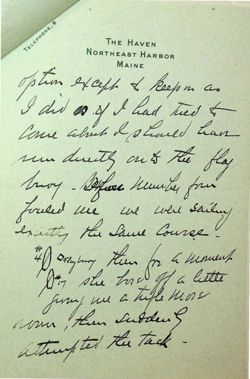 TELEPHONE, 6
THE HAVEN
NORTHEAST HARBOR
MAINE
option except to keep on as
I did as if I had tried to
come about I should have
run directly on to the flag
buoy - Before number four
fouled me we were sailing
exactly the same course -
#4 then for a moment
#17 she bore off a little
giving me a trifle more
room, then suddenly
attempted the tack -